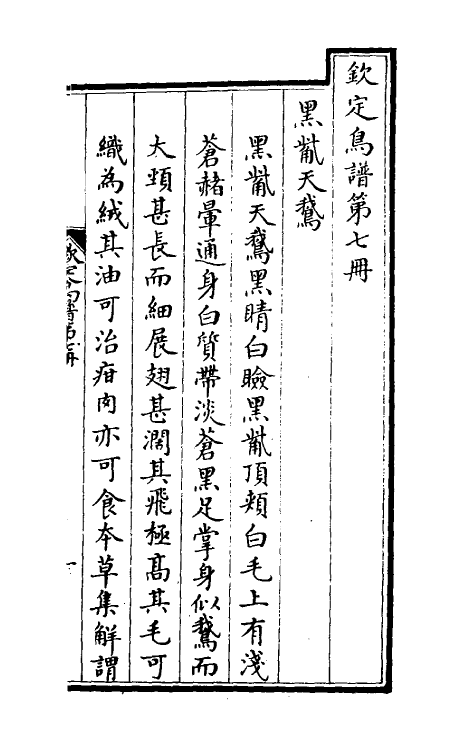 欽定鳥譜第七冊
黑觜天鵝
黑觜天鵝黑睛白瞼黑觜頂頰白毛上有淺
蒼赭暈通身白質帶淡蒼黑足掌身似鵞而
大頸甚長而細展翅甚濶其飛極高其毛可
織為絨其油可治疳肉亦可食本草集解謂